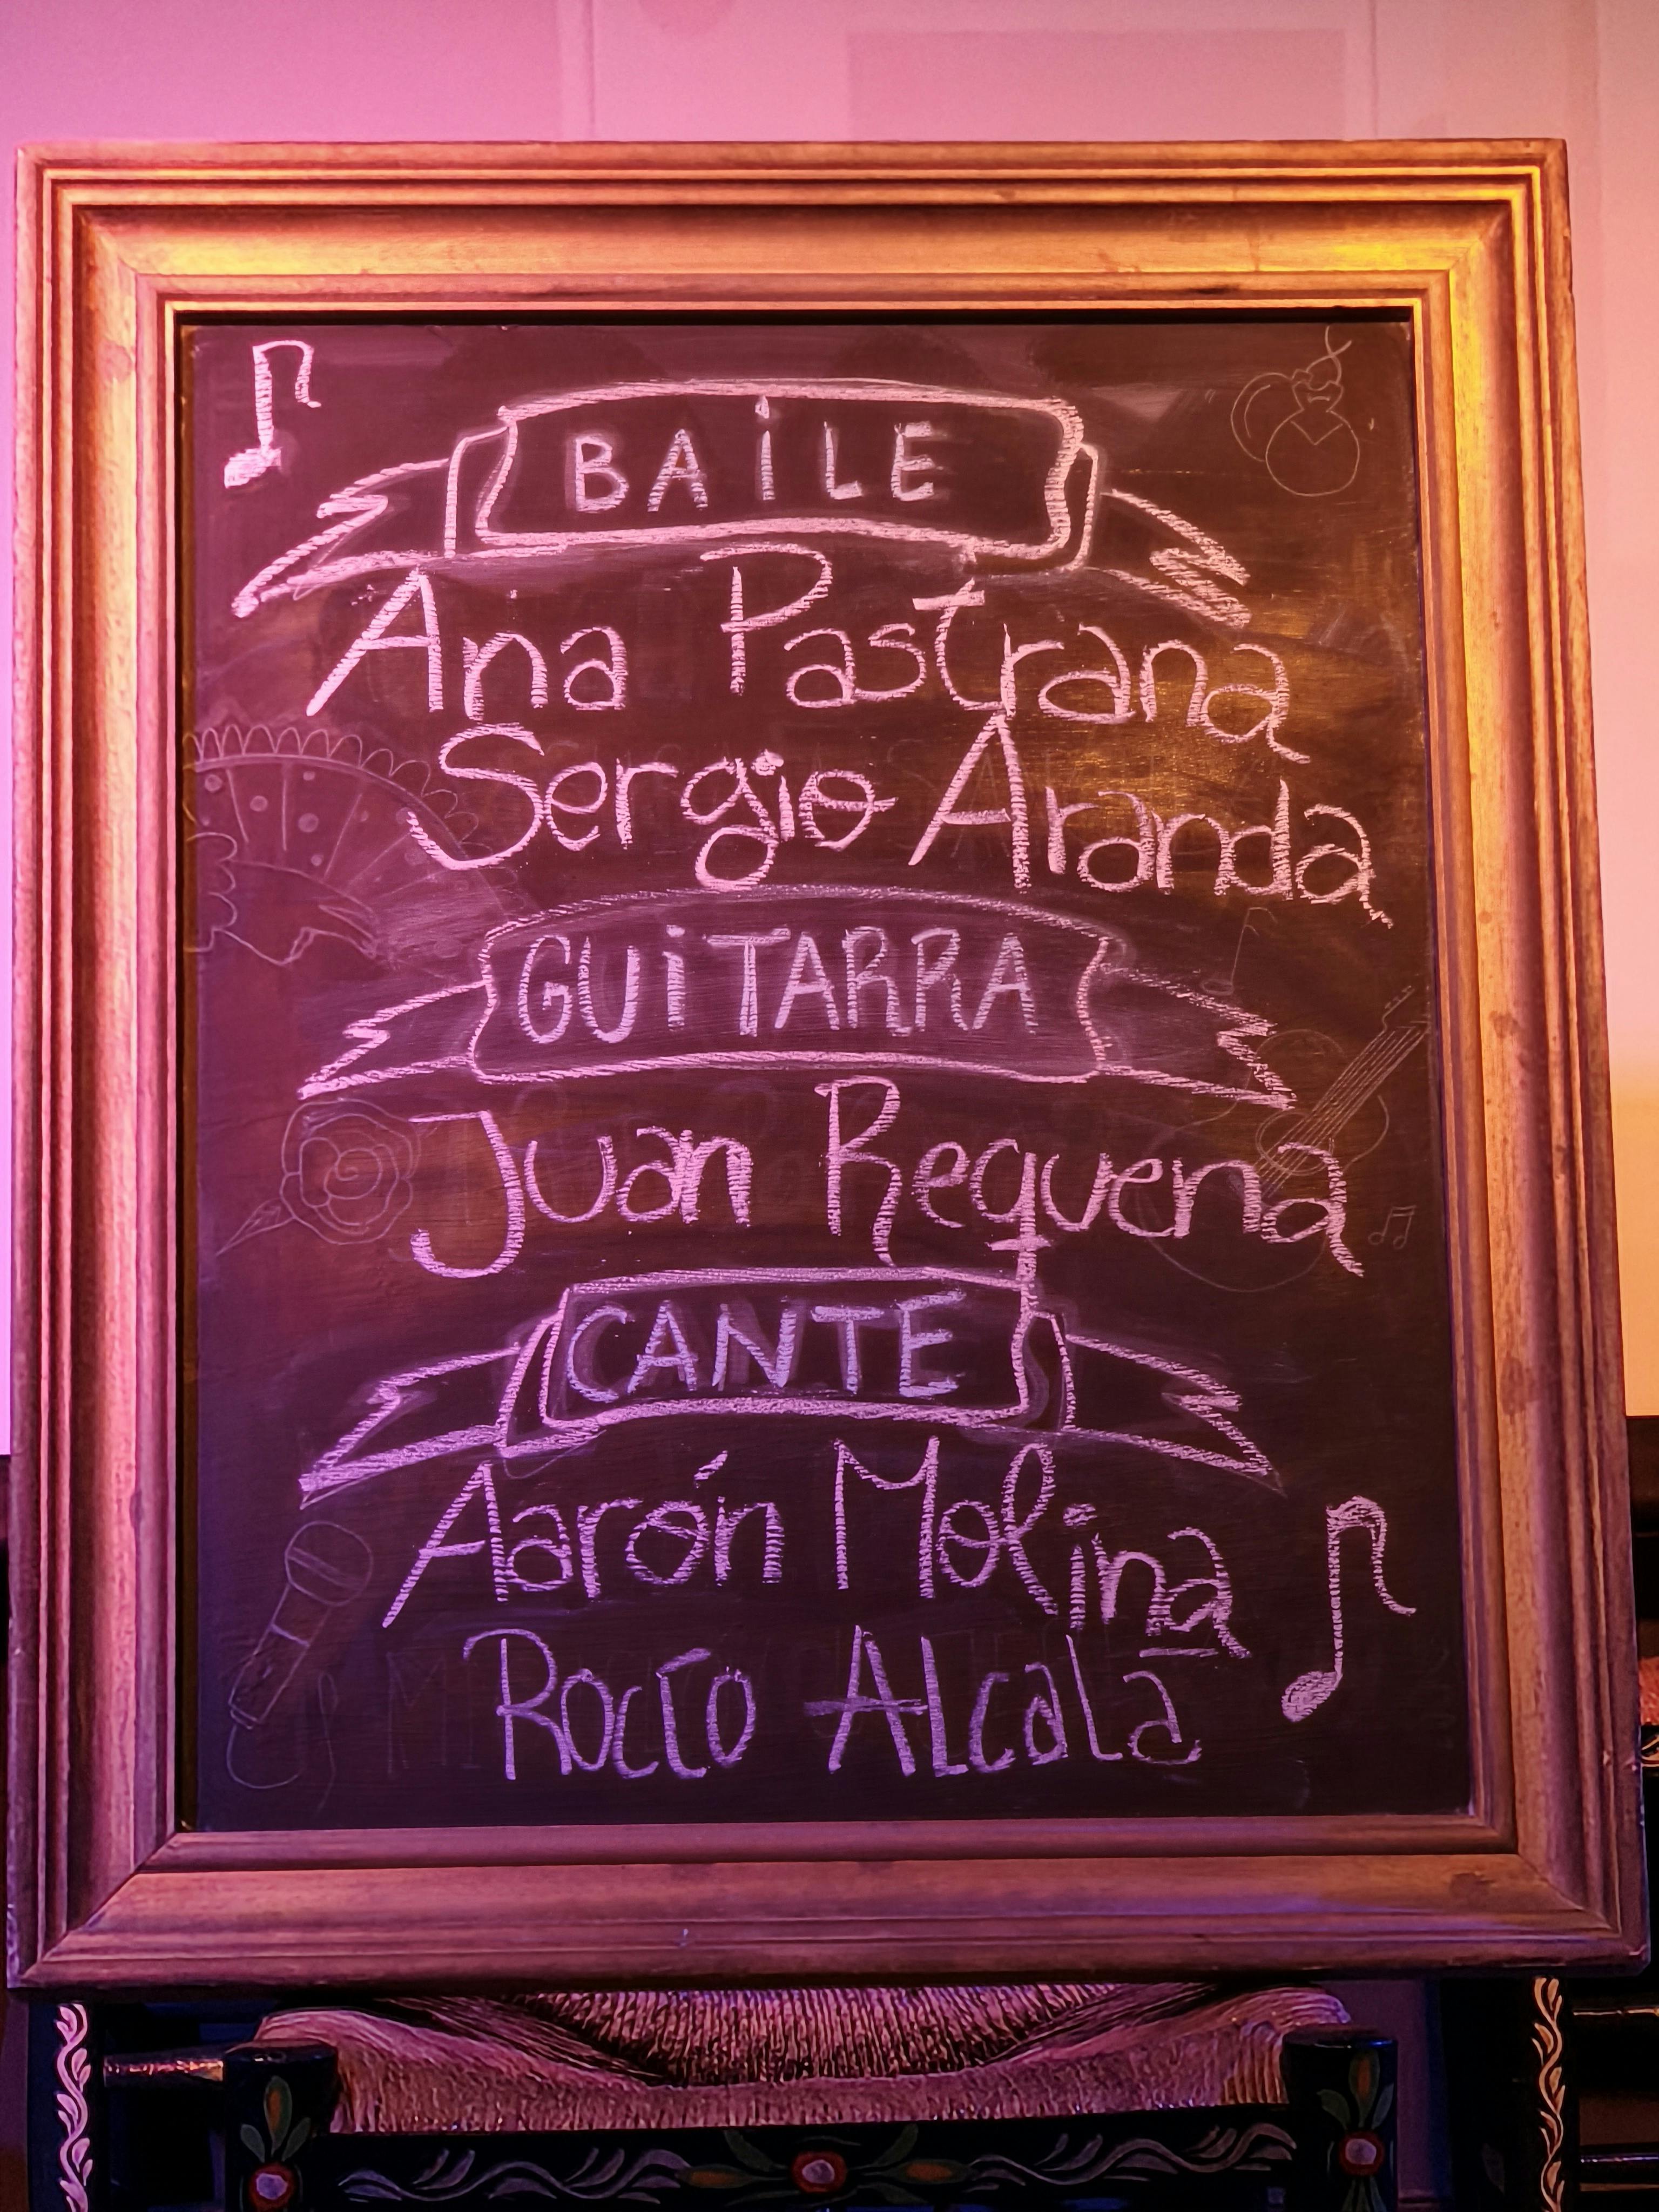 BAiLE
Ana Pastrana
Sergio Aranda
GUiTARRA
Juan Requena
CANTE
Aarón Molina
Rocío Alcalá